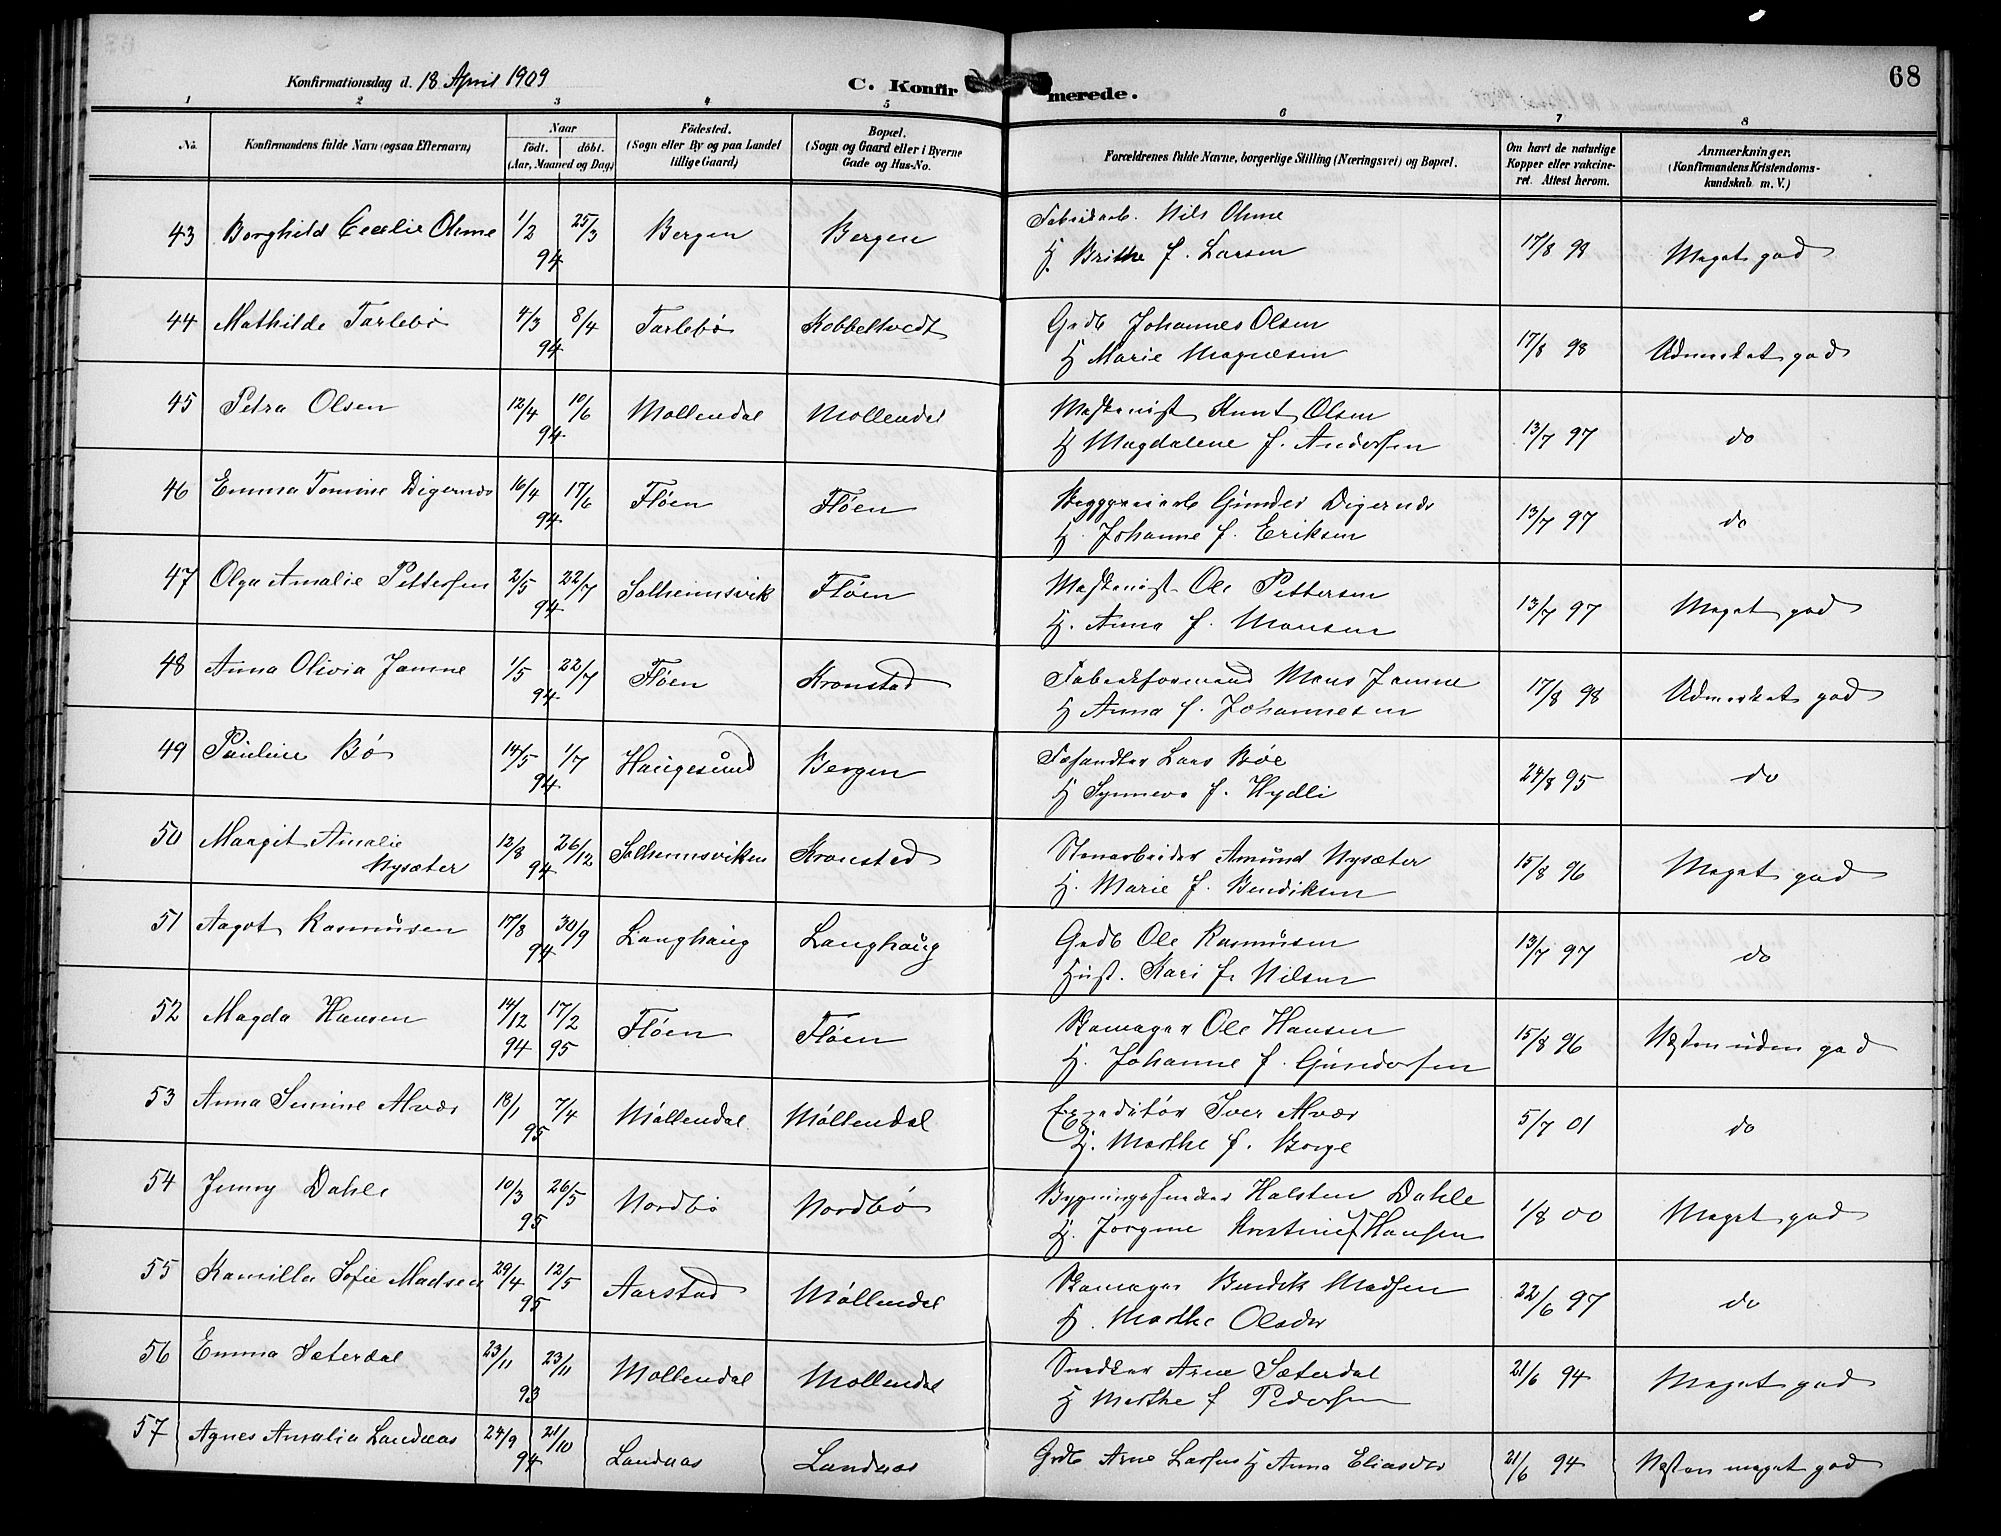 68
Konfirmationsdag d. 18 April 1909
C. Konfirmerede.
1 2 3 4 5 6 7 8
No. Konfirmandens fulde Navn (ogsaa Efternavn) Naar födt. döbt. (Aar, Maaned og Dag) Födested. (Sogn eller By og paa Landet tillige Gaard) Bopæl. (Sogn og Gaard eller i Byerne Gade og Hus-No. Forældrenes fulde Navne, borgerlige Stilling (Næringsvei) og Bopæl. Om havt de naturlige Kopper eller vakcineret. Attest herom. Anmærkninger. (Konfirmandens Kristendomskundskab m. V.)
43 Borghild Cecelie Ohme 1/2 94 25/3 Bergen Bergen Fabrikarb. Nils Ohme
H. Brithe f. Larsen 17/8 98 Meget god
44 Mathilde Tarlebø 4/3 94 8/4 Tarlebø Kobbeltvedt Grdb Johannes Olsen
H Marie Magnesen 17/8 98 Udmerket god
45 Petra Olsen 12/4 94 10/6 Møllendal Møllendal Maskenist Knut Olsen
H Magdalene f. Andersen 13/7 97 do
46 Emma Tomine Digernes 16/4 94 17/6 Fløen Fløen Gunder Digernes
H. Johanne f. Eriksen 13/7 97 do
47 Olga Amalie Pettersen 2/5 94 22/7 Solheimsvik Fløen Maskenist Ole Pettersen
H. Anna f. Monsen 13/7 97 Meget god
48 Anna Olivia Jamne 1/5 94 22/7 Fløen Kronstad Fabrikformand Mons Jamne
H Anna f. Johannesen 17/8 98 Udmerket god
49 Pauline Bø 14/5 94 1/7 Haugesund Bergen Lars Bøe
H Synneva f. Hydli 24/8 95 do
50 Margit Amalie
Nysæter 12/8 94 26/12 Solheimsviken Kronstad Stenarbeider Amund Nysæter
H. Marie f. Bendiksen 15/8 96 Meget god
51 Aagot Rasmusen 17/8 94 30/9 Langhaug Langhaug Grdb Ole Rasmusen
Hust. Kari f. Nilsen 13/7 97 do
52 Magda Hansen 14/12 94 17/2 95 Fløen Fløen Skomager Ole Hansen
H. Johanne f. Gundersen 15/8 96 Næsten uden god
53 Anna Semine Alvær 18/1 95 7/4 Møllendal Møllendal Expeditør Iver Alvær
H. Marthe f. Borge 5/7 01 do
54 Jenny Dahle 10/3 95 26/5 Nordbø Nordbø Bygningssnedker Halsten Dahle
H. Jørgine Kristine f Hansen 1/8 00 Meget god
55 Kamilla Sofie Madsen 29/4 95 12/5 Aarstad Møllendal Skomager Bendik Madsen
H. Marthe Olsdtr 22/6 97 do
56 Emma Sæterdal 23/11 93 23/11 Møllendal Møllendal Snedker Arne Sæterdal
H Marthe f Pedersen 21/6 94 Meget god
57 Agnes Amalia Landaas 24/9 94 21/10 Landaas Landaas Grdb Arne Larsen H Anna Eliasdtr 21/6 94 Næsten meget god